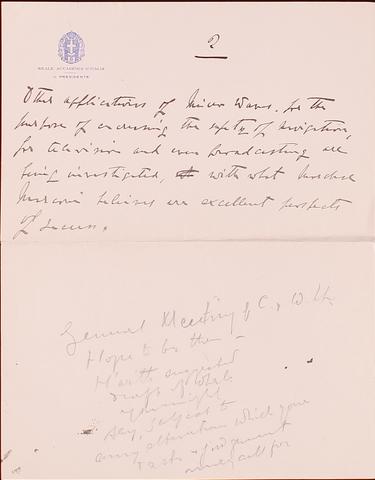 2
REALE ACCADEMIA D'ITALIA
IL PRESIDENTE
Other applications of Micro Waves, for the
purpose of encreasing the safety of navigation,
for television and even broadcasting are
being investigated, with what Marchese
Marconi believes are excellent prospects
of success.
General Meeting of C. & W. Ltd,
Hope to be there -
Herewith suggested
draft of what
you might
say, subject to
any alteration which your
taste & judgement
may call for